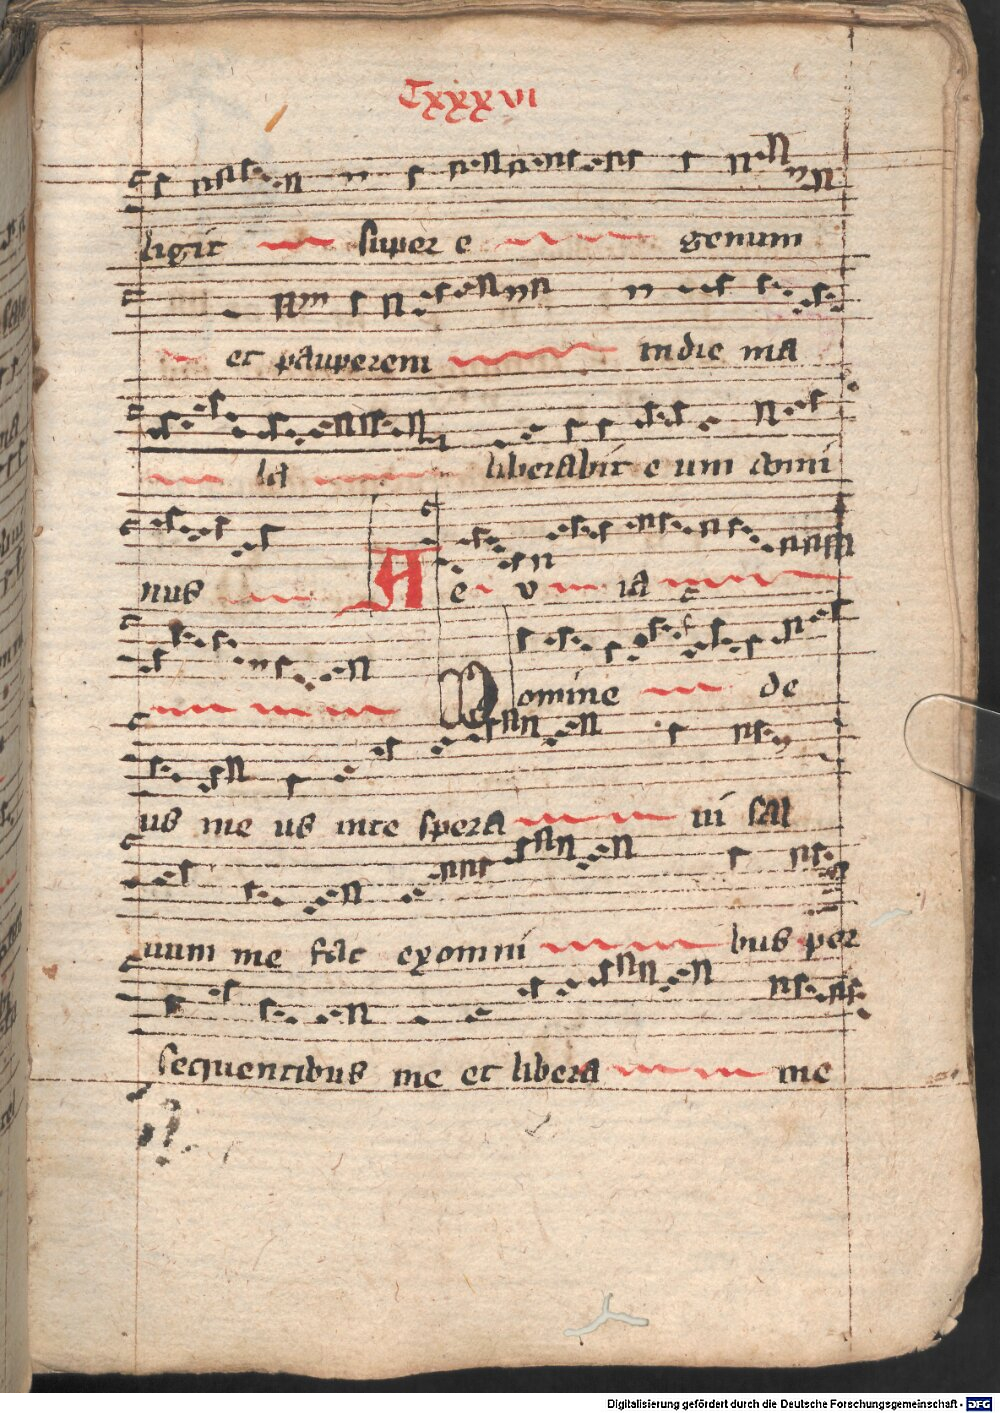 Cxxxvi
ligit super e genum
et pauperem in die ma
la liberabit e um domi
nus A e v ia
Domine de
us me us in te spera ui sal
uum me fac ex omni bus per
sequentibus me et libera me
Digitalisierung gefördert durch die Deutsche Forschungsgemeinschaft - DFG